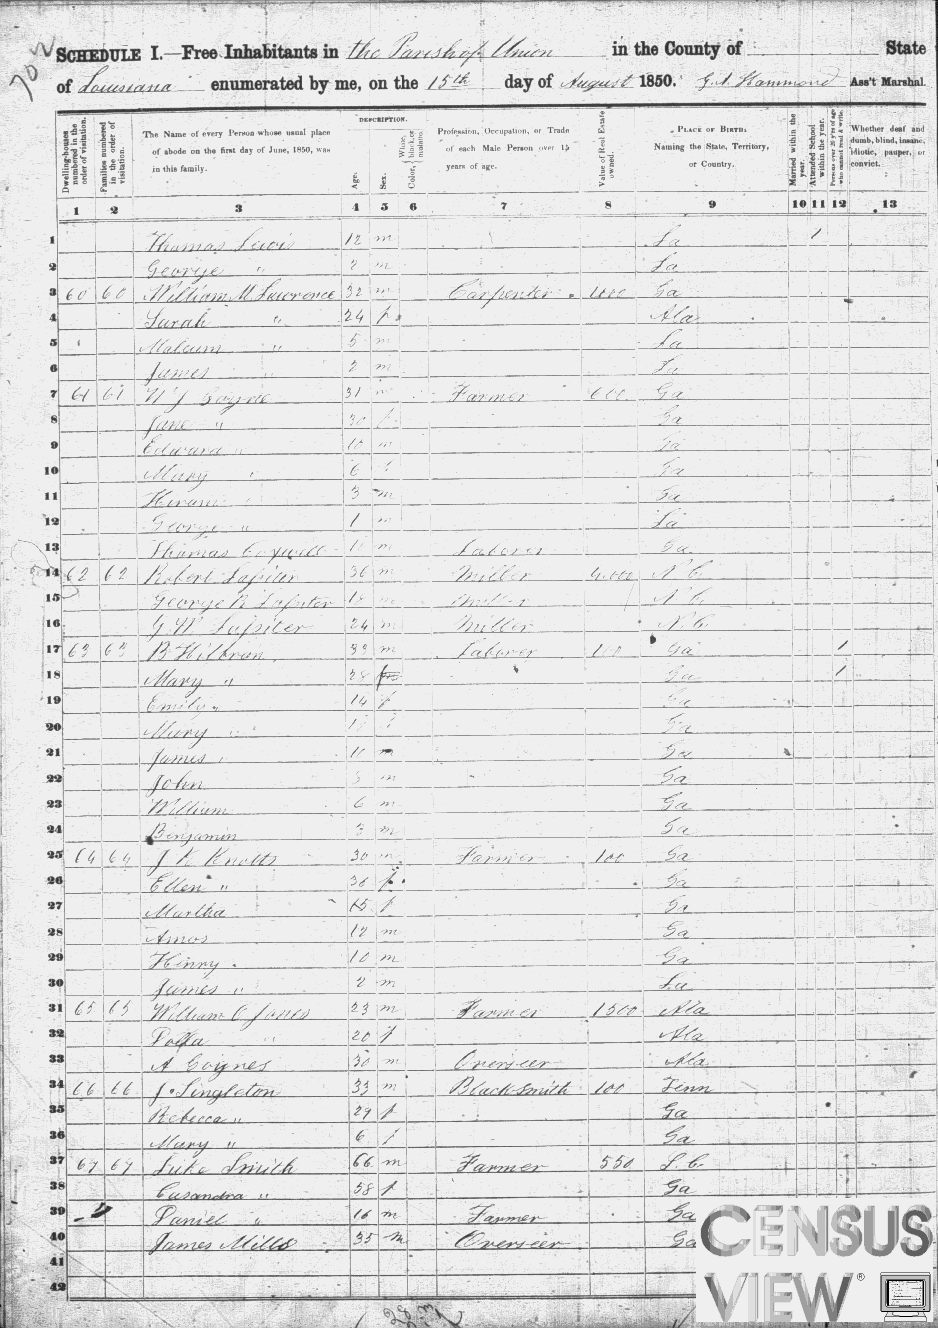 70
SCHEDULE I.—Free Inhabitants in the Parish of Union in the County of State
of Louisiana enumerated by me, on the 15th day of August 1850. Hammond Ass't Marshal.
Dwelling-houses numbered in the order of visitation.
Families numbered in the order of visitation.
The Name of every Person whose usual place of abode on the first day of June, 1850, was in this family.
DESCRIPTION.
Age.
Sex.
Color, White, black, or mulatto.
Profession, Occupation, or Trade of each Male Person over 15 years of age.
Value of Real Estate owned.
PLACE OF BIRTH: Naming the State, Territory, or Country.
Married within the year.
Attended School within the year.
Persons over 20 y'rs of age who cannot read & write.
Whether deaf and dumb, blind, insane, idiotic, pauper, or convict.
1 2 3 4 5 6 7 8 9 10 11 12 13
1 Thomas Lewis 12 m La /
2 George " 2 m La
3 60 60 William M Lawrence 32 m Carpenter 1000 Ga
4 Sarah " 24 f Ala
5 Malcum " 5 m La
6 James 2 m La
7 61 61 W J 31 m Farmer 600 Ga
8 Jane " 30 f Ga
9 Edward " 10 m Ga
10 Mary " 6 f Ga
11 Hiram 3 m Ga
12 George " 1 m La
13 Thomas m Laborer Ga
14 62 62 Robert Lafsiter 36 m Miller 4,000 N C
15 George R Lafsiter m Miller N C
16 G W Lafsiter 24 m Miller N C
17 63 63 B Hilbran 33 m Laborer 100 Ga /
18 Mary " 28 f Ga /
19 Emily " 14 f Ga
20 Mary " f Ga
21 James m Ga
22 John m Ga
23 William 6 m Ga
24 Benjamin 3 m Ga
25 64 64 J K Knotts 30 m Farmer 100 Ga
26 Ellen " 36 f Ga
27 Martha 15 f Ga
28 Amos 12 m Ga
29 Hinry 10 m Ga
30 James " 2 m La
31 65 65 William C Jones 23 m Farmer 1500 Ala
32 " 20 f Ala
33 A Goynes 30 m Overseer Ala
34 66 66 J. Singleton 33 m Black-smith 100 Tenn
35 Rebecca " 29 f Ga
36 Mary " 6 f Ga
37 67 67 Luke Smith 66 m Farmer 550 S. C.
38 Casandra " 58 f Ga
39 Daniel " 16 m Farmer Ga
40 James Mills 35 m Overseer Ga
41
42
CENSUS
VIEW®